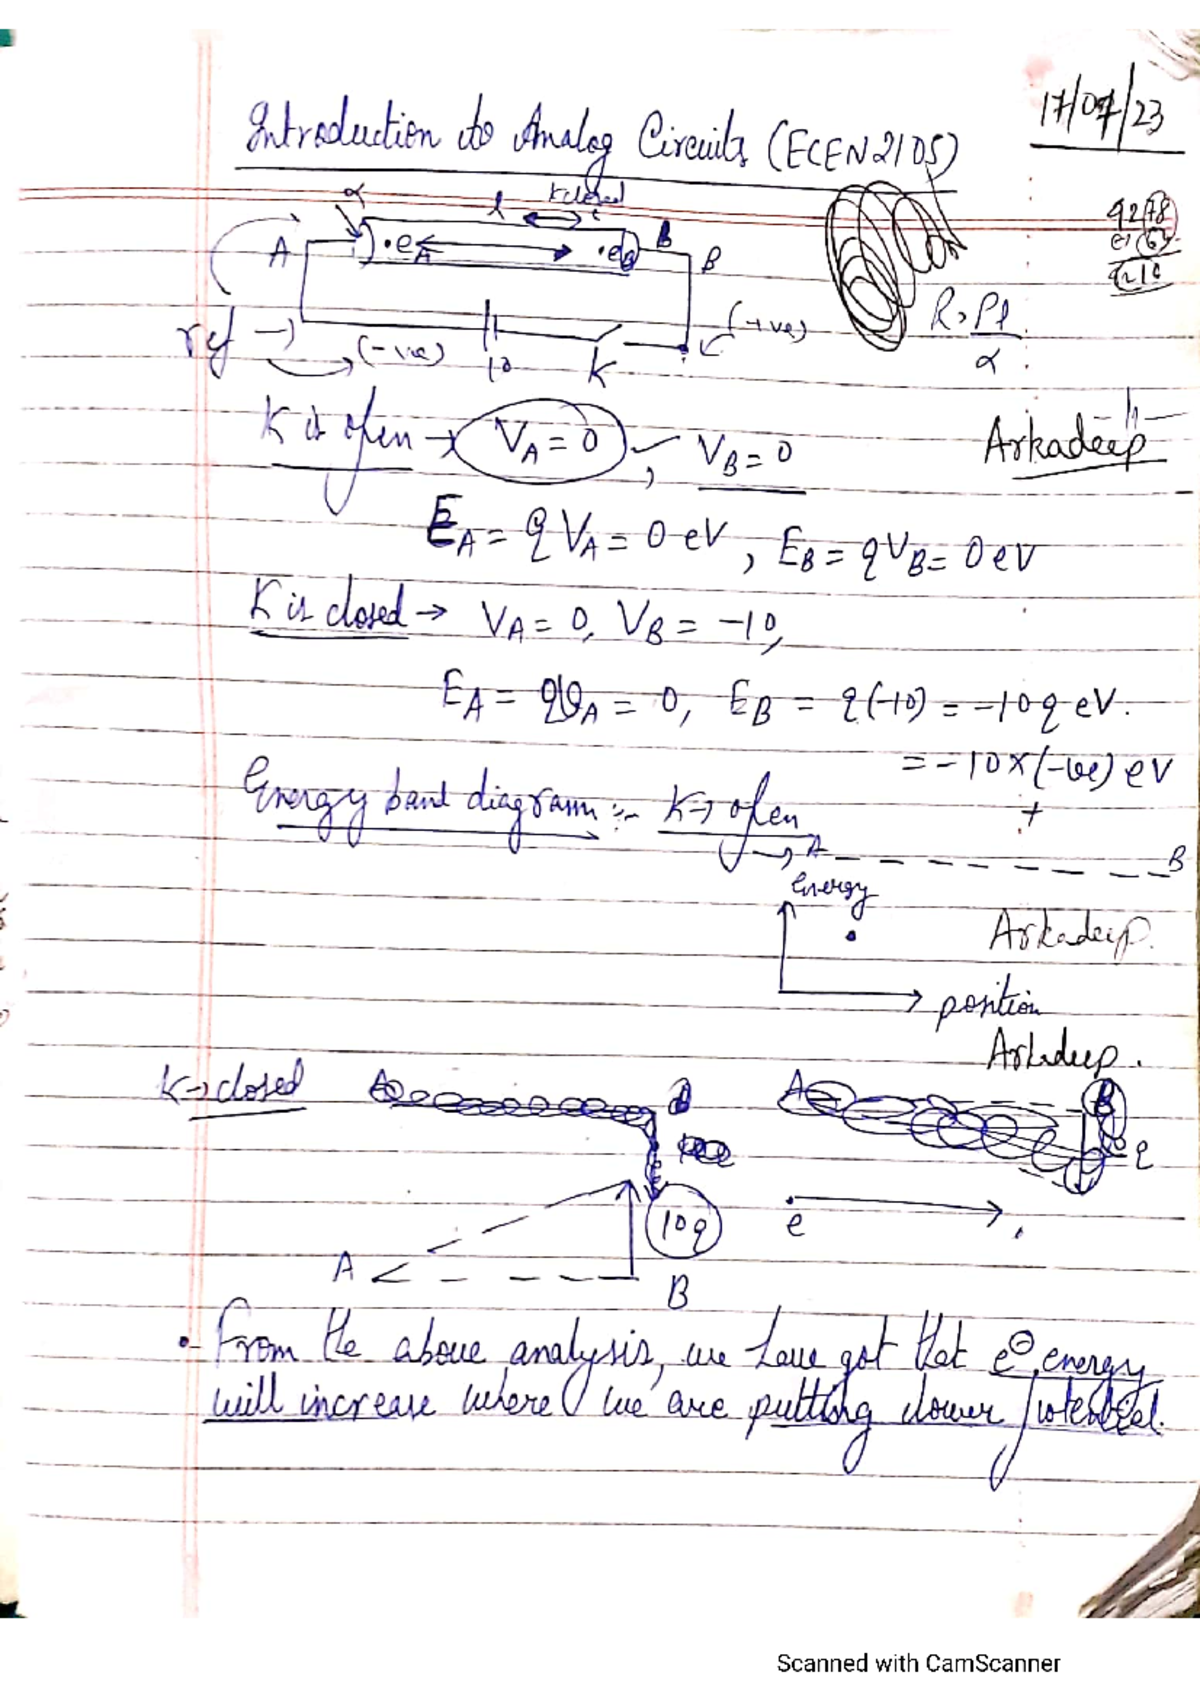 17/07/23
Introduction to Analog Circuits (ECEN2105)
α l K closed
A .eA .eB B B
ref → (-ve) 10 K (+ve)
R = ρl
α
K is open → VA = 0, VB = 0
Arkadeep
EA = qVA = 0 eV, EB = qVB = 0 eV
K is closed → VA = 0, VB = -10,
EA = qVA = 0, EB = q(-10) = -10q eV.
= -10×(-ve) eV
+
Energy band diagram :- K → open
→ A B
Energy
Arkadeep.
position
Arkadeep.
K → closed A B A B
10q e
A B
• From the above analysis, we have got that e⊖ energy
will increase where we are putting lower potential.
Scanned with CamScanner